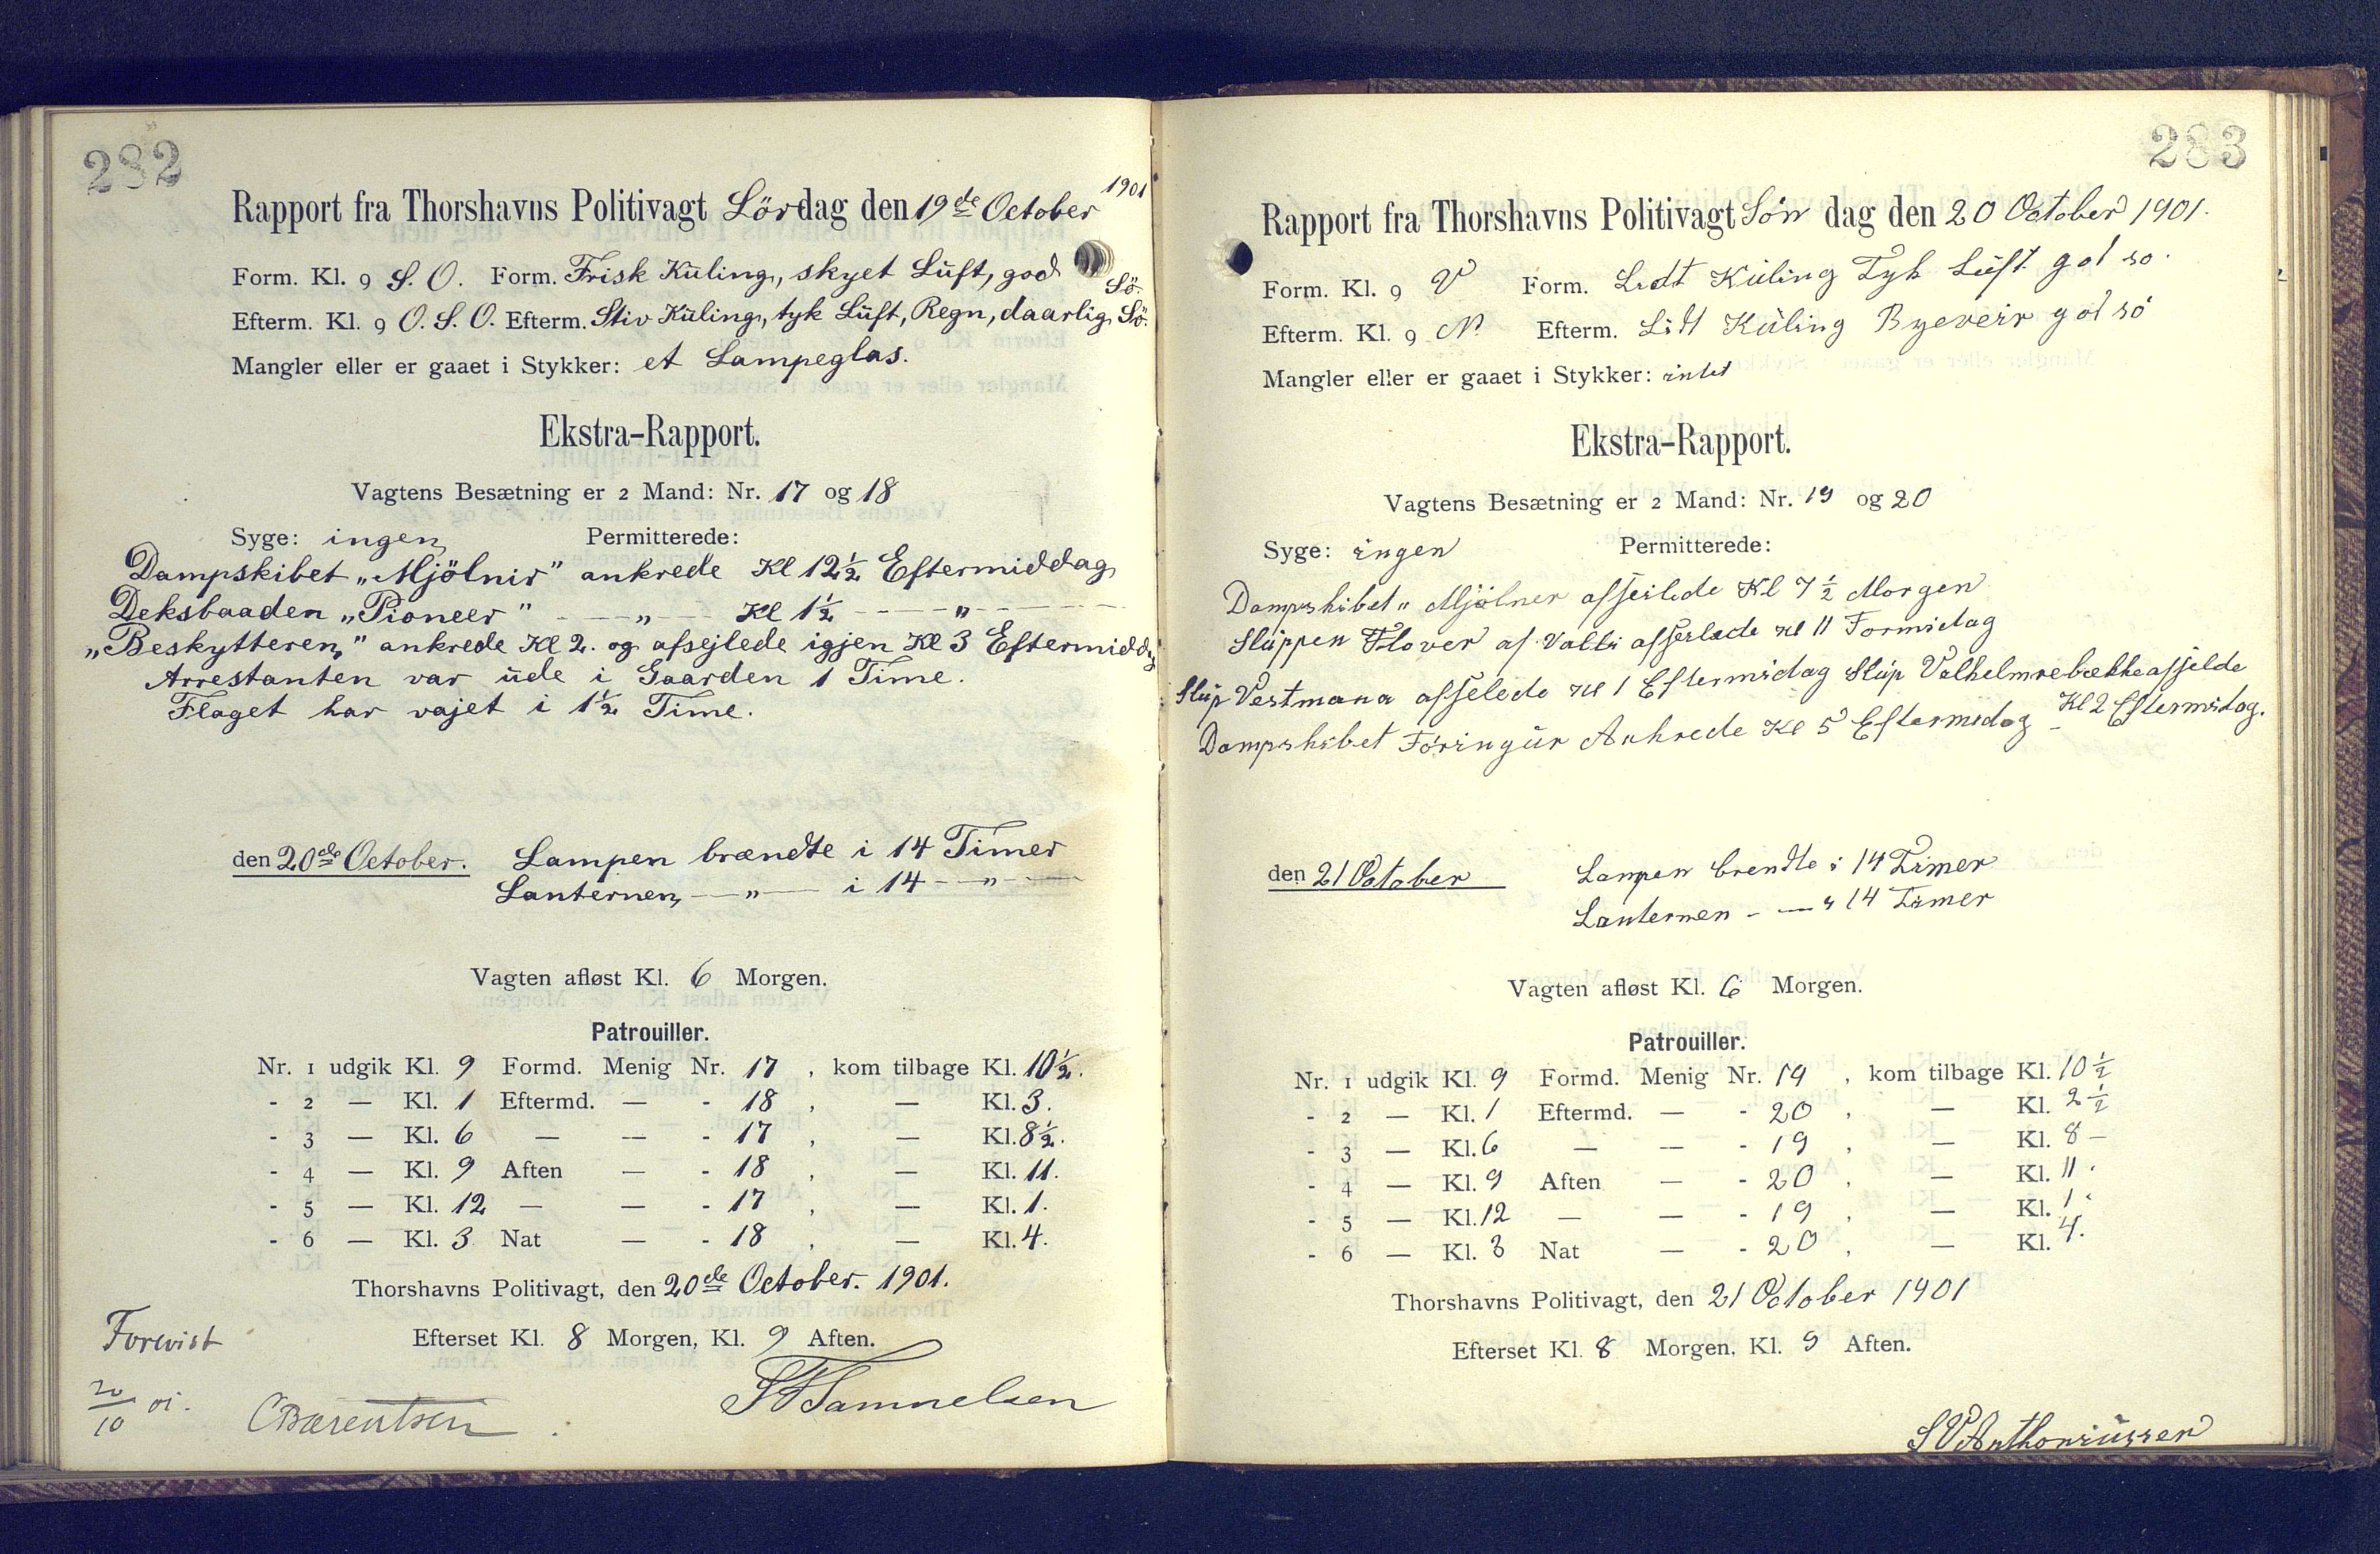 282
Rapport fra Thorshavns Politivagt Lördag den 19de October 1901
Form. Kl. 9 S. O. Form. Frisk Küling, skyet Lüft, god Sö.
Efterm. Kl. 9 O. S. O. Efterm. Stiv Küling, tyk Lüft, Regn, daarlig Sö.
Mangler eller er gaaet i Stykker: et Lampeglas.
Ekstra-Rapport.
Vagtens Besætning er 2 Mand: Nr. 17 og 18
Syge: ingen Permitterede:
Dampskibet „Mjölnir" ankrede Kl 12½ Eftermiddag
Deksbaaden „Pioneer" — „ — Kl 1½ — „ —
„Beskytteren" ankrede Kl 2. og afsejlede igjen Kl 3 Eftermiddag
Arrestanten var üde i Gaarden 1 Time.
Flaget har vajet i 1½ Time.
den 20de October. Lampen brændte i 14 Timer
Lanternen — „ — i 14 — „ —
Vagten afløst Kl. 6 Morgen.
Patrouiller.
Nr. 1 udgik Kl. 9 Formd. Menig Nr. 17 , kom tilbage Kl. 10½.
- 2 — Kl. 1 Eftermd. — - 18 , — Kl. 3.
- 3 — Kl. 6 — — - 17 , — Kl. 8½.
- 4 — Kl. 9 Aften — - 18 , — Kl. 11.
- 5 — Kl. 12 — — - 17 , — Kl. 1.
- 6 — Kl. 3 Nat — - 18 , — Kl. 4.
Thorshavns Politivagt, den 20de October. 1901.
Efterset Kl. 8 Morgen, Kl. 9 Aften.
Forevist
20/10 01.
CBærentsen
Samuelsen
283
Rapport fra Thorshavns Politivagt Sön dag den 20 October 1901.
Form. Kl. 9 V Form. Lidt Küling Tyk Lüft god so.
Efterm. Kl. 9 N. Efterm. Lidt Küling Byeveir god só
Mangler eller er gaaet i Stykker: intet
Ekstra-Rapport.
Vagtens Besætning er 2 Mand: Nr. 19 og 20
Syge: ingen Permitterede:
Dampskibet „ Mjölner afseilede Kl 7½ Morgen
Slüppen af Valbÿ Kl 11 Formidag
Slüp Vestmana afselede Kl 1 Eftermidag Slüp
Kl 2 Eftermidag.
Dampskibet Föringür Ankrede Kl 5 Eftermidag
den 21 October Lampen brendte i 14 Timer
Lanternen - — „ 14 Timer
Vagten afløst Kl. 6 Morgen.
Patrouiller.
Nr. 1 udgik Kl. 9 Formd. Menig Nr. 19 , kom tilbage Kl. 10½
- 2 — Kl. 1 Eftermd. — - 20 , — Kl. 2½
- 3 — Kl. 6 — — - 19 , — Kl. 8 —
- 4 — Kl. 9 Aften — - 20 , — Kl. 11.
- 5 — Kl. 12 — — - 19 , — Kl. 1.
- 6 — Kl. 3 Nat — - 20 , — Kl. 4.
Thorshavns Politivagt, den 21 October 1901
Efterset Kl. 8 Morgen, Kl. 9 Aften.
SVAnthoniüssen